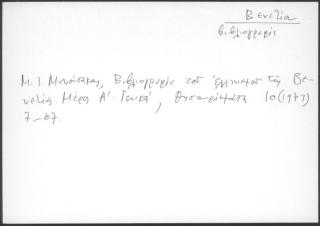 Βενετία
βιβλιογραφία
Μ. Ι. Μανούσακας, Βιβλιογραφία τοῦ Ἑλληνισμοῦ τῆς Βε-
νετίας. Μέρος Α΄: Γενικά, Θησαυρίσματα 10 (1973)
7-87.